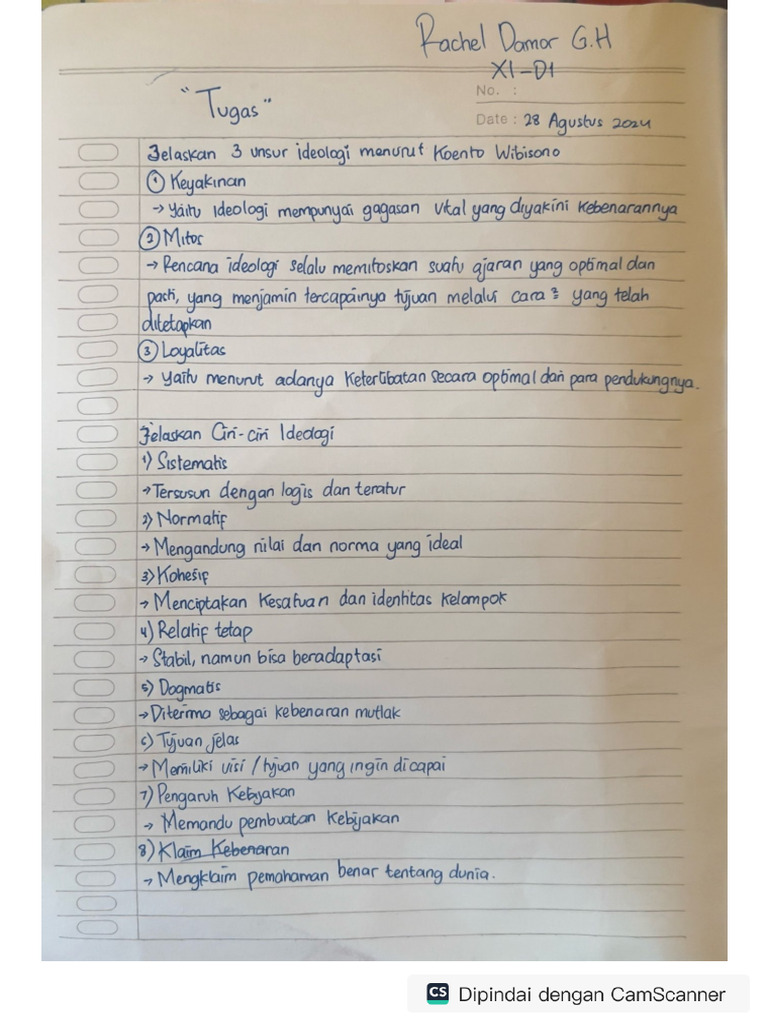 Rachel Damor G.H
XI-D1
"Tugas"
No. :
Date : 28 Agustus 2024
Jelaskan 3 unsur ideologi menurut Koento Wibisono
① Keyakinan
→ yaitu Ideologi mempunyai gagasan vital yang diyakini kebenarannya
② Mitos
→ Rencana ideologi selalu memitoskan suatu ajaran yang optimal dan
pasti, yang menjamin tercapainya tujuan melalui cara² yang telah
ditetapkan
③ Loyalitas
→ yaitu menurut adanya keterlibatan secara optimal dari para pendukungnya.
Jelaskan Ciri-ciri Ideologi
1) Sistematis
→ Tersusun dengan logis dan teratur
2) Normatif
→ Mengandung nilai dan norma yang ideal
3) Kohesif
→ Menciptakan kesatuan dan identitas kelompok
4) Relatif tetap
→ Stabil, namun bisa beradaptasi
5) Dogmatis
→ Diterima sebagai kebenaran mutlak
6) Tujuan jelas
→ Memiliki visi / tujuan yang ingin dicapai
7) Pengaruh Kebijakan
→ Memandu pembuatan kebijakan
8) Klaim Kebenaran
→ Mengklaim pemahaman benar tentang dunia.
CS Dipindai dengan CamScanner